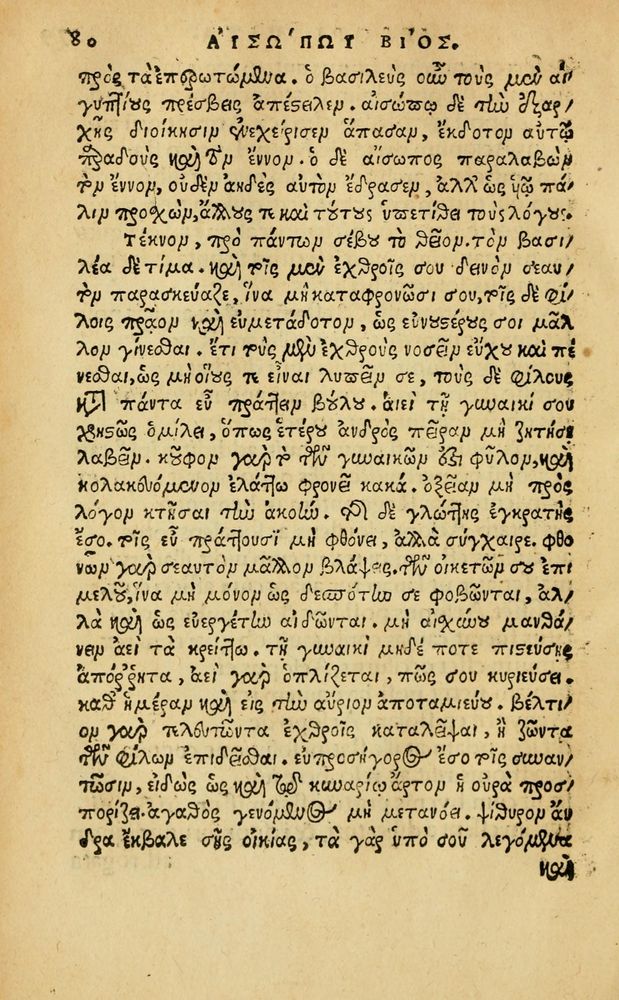 80 ΑΙΣΩΠΟΥ ΒΙΟΣ.
πρὸς τὰ ἐπερωτώμενα. ὁ βασιλεὺς οὖν τοὺς μὲν αἰ
γυπτίους πρέσβεις ἀπέστειλεν. αἰσώπῳ δὲ τὴν ἐξαρ/
χῆς διοίκησιν ἐνεχείρισεν ἅπασαν, ἔκδοτον αὐτῷ
παραδοὺς καὶ τὸν ἔννον. ὁ δὲ αἴσωπος παραλαβὼν
τὸν ἔννον, οὐδὲν ἀηδὲς αὐτὸν ἔδρασεν, ἀλλ' ὡς υἱῷ πά/
λιν προσχὼν, ἄλλους τε καὶ τούτους ὑπετίθει τοὺς λόγους.
Τέκνον, πρὸ πάντων σέβου τὸ θεῖον. τὸν βασι/
λέα δὲ τίμα. καὶ τοῖς μὲν ἐχθροῖς σου δεινὸν σεαυ/
τὸν παρασκεύαζε, ἵνα μὴ καταφρονῶσί σου, τοῖς δὲ φί/
λοις πρᾶον καὶ εὐμετάδοτον, ὡς εὐνουστέρους σοι μᾶλ
λον γίνεσθαι. ἔτι τοὺς μὲν ἐχθροὺς νοσεῖν εὔχου καὶ πέ
νεσθαι, ὡς μὴ οἵους τε εἶναι λυπεῖν σε, τοὺς δὲ φίλους
κατὰ πάντα εὖ πράττειν βούλου. ἀιεὶ τῇ γυναικί σου
χρηστῶς ὁμίλει, ὅπως ἑτέρου ἀνδρὸς πεῖραν μὴ ζητήσῃ
λαβεῖν. κοῦφον γὰρ τὸ τῶν γυναικῶν ἐστι φύλον, καὶ
κολακευόμενον ἐλάττω φρονεῖ κακά. ὀξεῖαν μὴ πρὸς
λόγον κτῆσαι τὴν ἀκοήν. τῆς δὲ γλώττης ἐγκρατὴς
ἔσο. τοῖς εὖ πράττουσι μὴ φθόνει, ἀλλὰ σύγχαιρε. φθο
νῶν γὰρ σεαυτὸν μᾶλλον βλάψεις. τῶν οἰκετῶν σου ἐπι
μελοῦ, ἵνα μὴ μόνον ὡς δεσπότην σε φοβῶνται, ἀλ/
λὰ καὶ ὡς εὐεργέτην αἰδῶνται. μὴ αἰσχύνου μανθά/
νειν ἀεὶ τὰ κρείττω. τῇ γυναικὶ μηδέ ποτε πιστεύσῃς
ἀπόῤῥητα, ἀεὶ γὰρ ὁπλίζεται, πῶς σου κυριεύσει.
καθ' ἡμέραν καὶ εἰς τὴν αὔριον ἀποταμιεύου. βέλτι/
ον γὰρ τελευτῶντα ἐχθροῖς καταλεῖψαι, ἢ ζῶντα
τῶν φίλων ἐπιδεῖσθαι. εὐπροσήγορος ἔσο τοῖς συναν/
τῶσιν, εἰδὼς ὡς καὶ τῷ κυναρίῳ ἄρτον ἡ οὐρὰ προσ/
πορίζει. ἀγαθὸς γενόμενος μὴ μετανόει. ψίθυρον ἄν
δρα ἔκβαλε σῆς οἰκίας, τὰ γὰρ ὑπὸ σοῦ λεγόμενα
καὶ